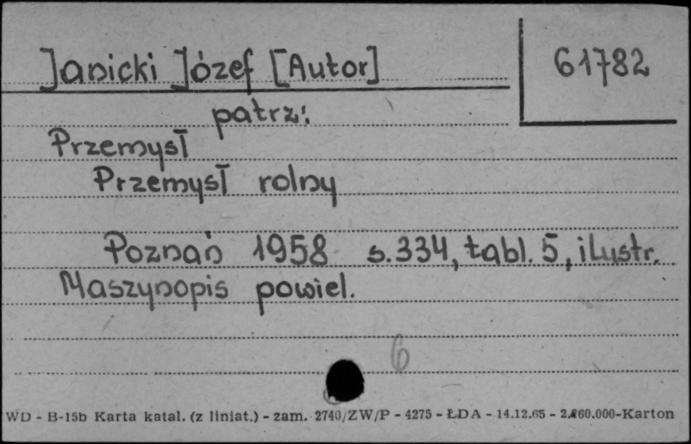 Janicki Józef [Autor]
61782
patrz:
Przemysł
Przemysł rolny
Poznań 1958 s. 334, tabl. 5, ilustr.
Maszynopis powiel.
6
WD - B-15b Karta katal. (z liniat.) - zam. 2740/ZW/P - 4275 - ŁDA - 14.12.65 - 2.260.000-Karton